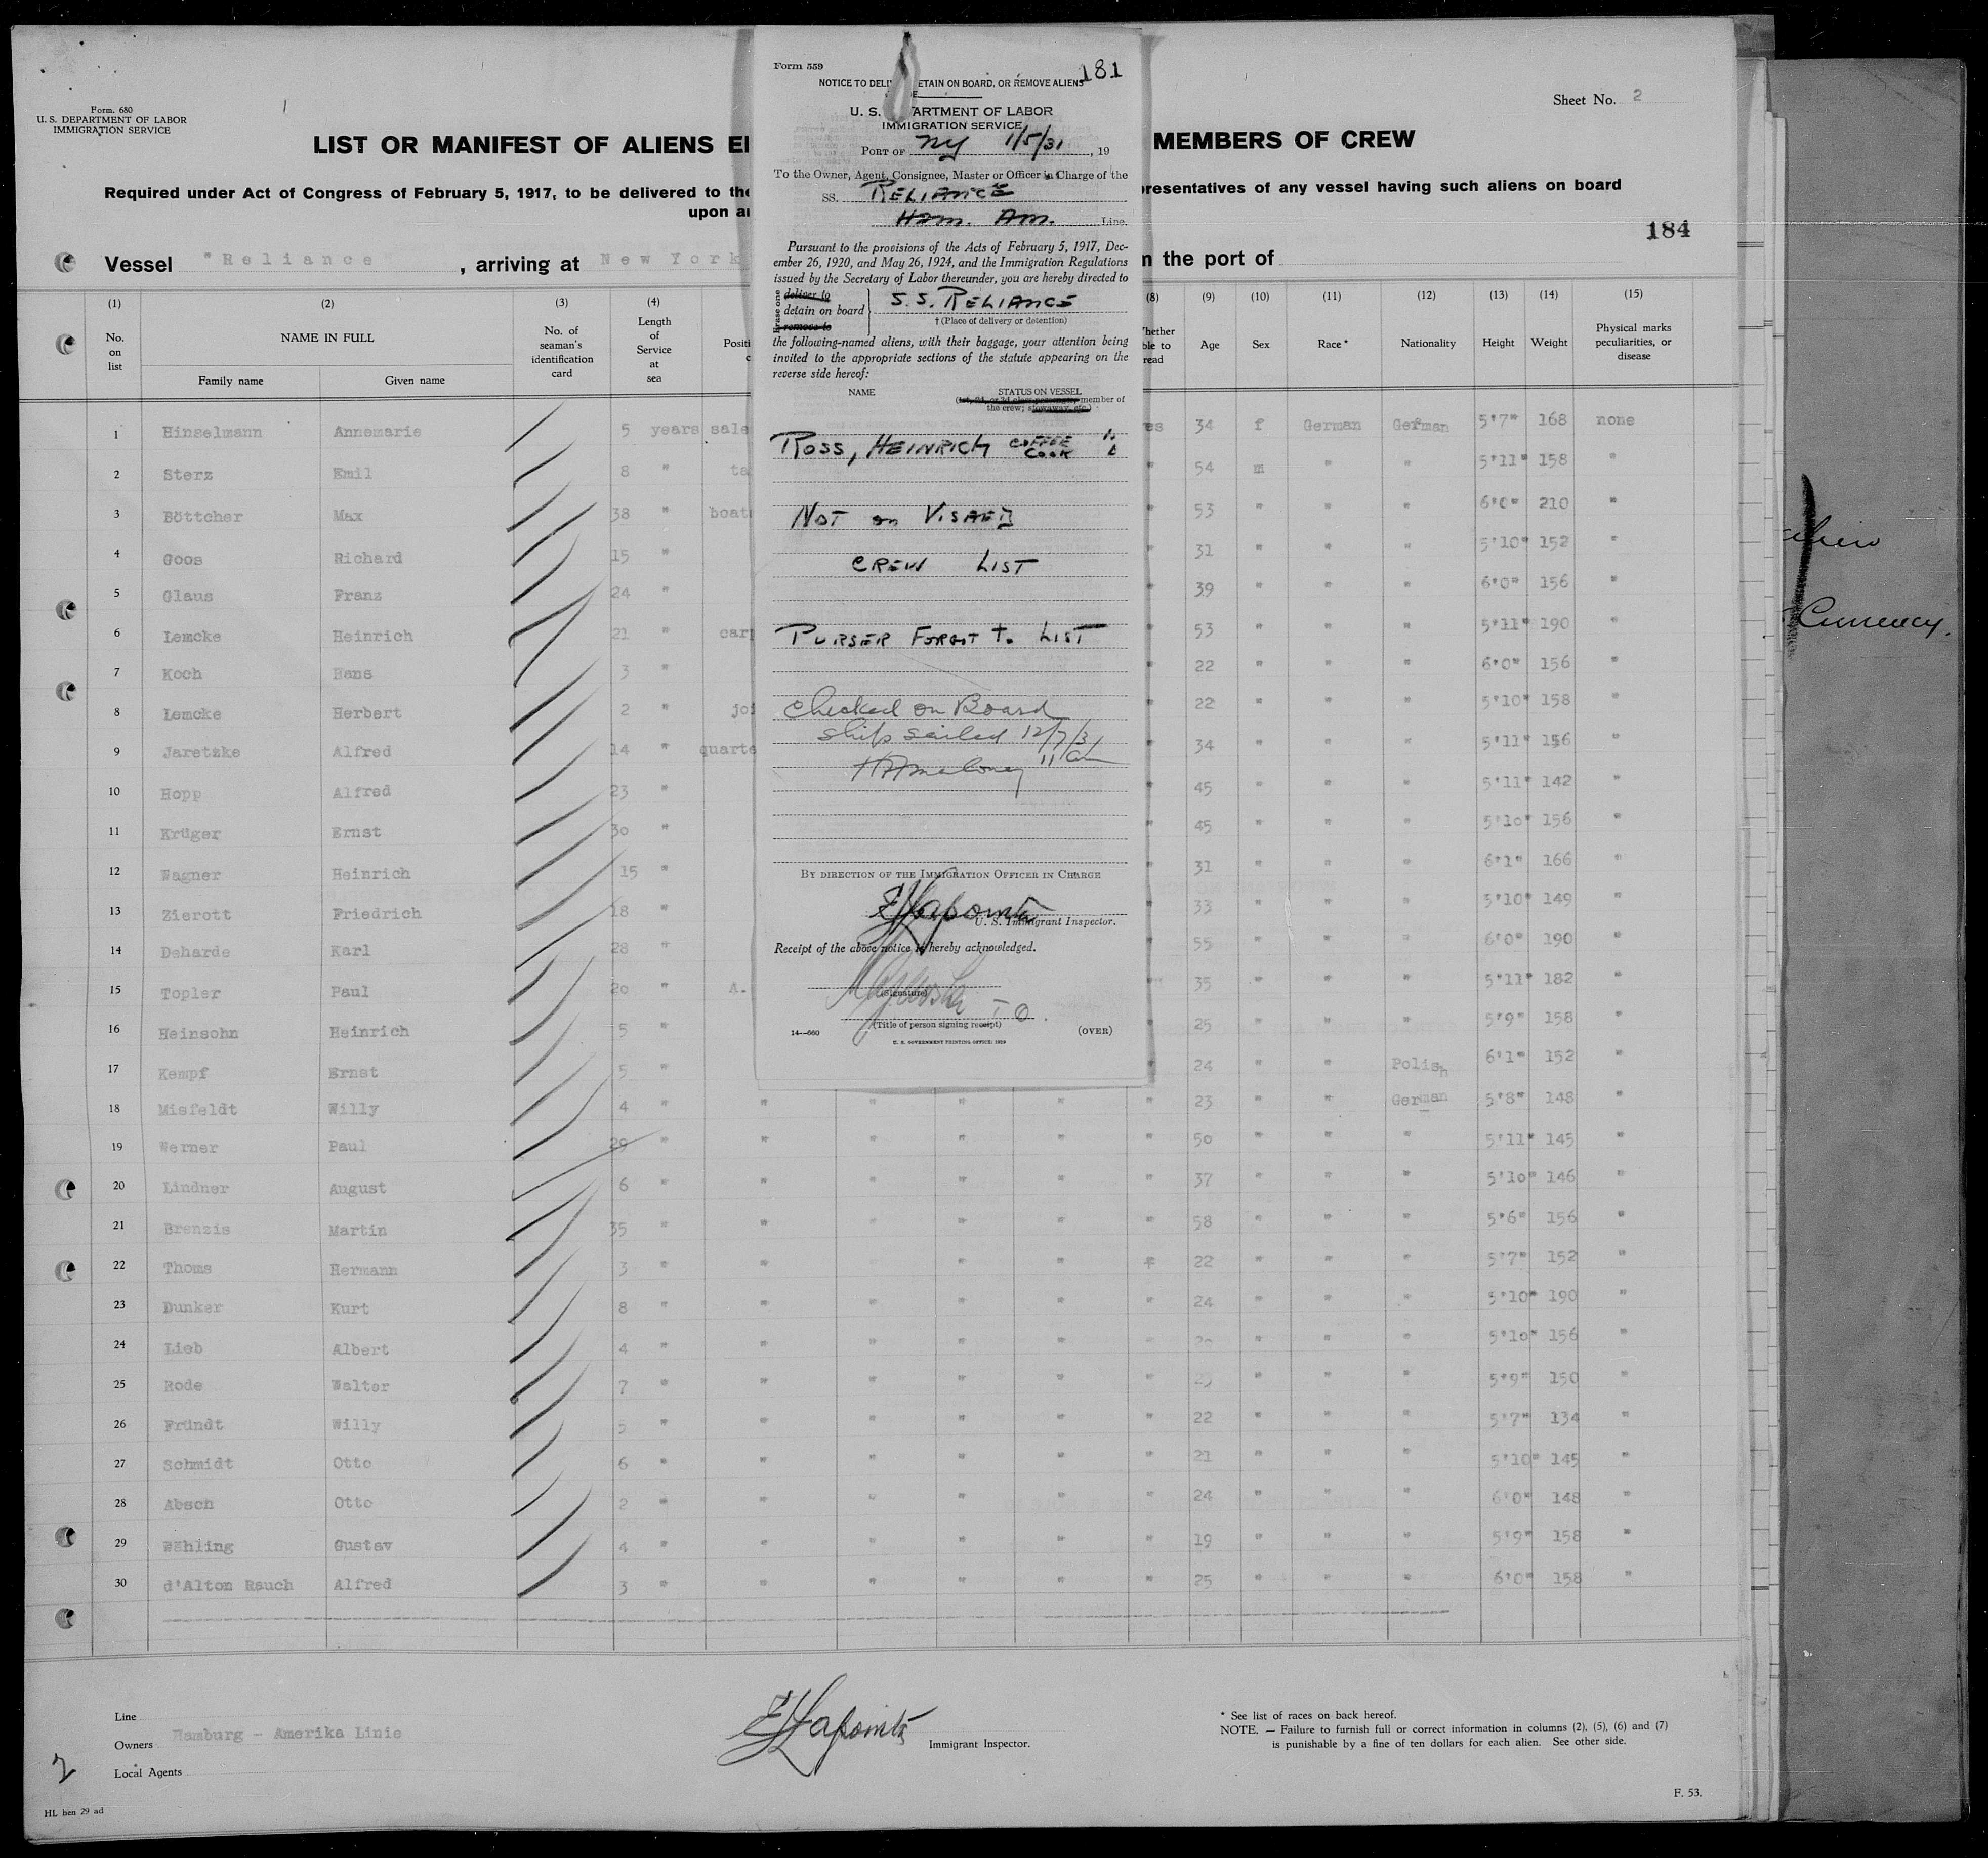 Form. 680
U. S. DEPARTMENT OF LABOR
IMMIGRATION SERVICE
Sheet No. 2
LIST OR MANIFEST OF ALIENS E
MEMBERS OF CREW
Required under Act of Congress of February 5, 1917, to be delivered to the
presentatives of any vessel having such aliens on board
upon a
184
Vessel "Reliance , arriving at New York
the port of
(1) (2) (3) (4) (8) (9) (10) (11) (12) (13) (14) (15)
No. on list
NAME IN FULL
Family name Given name
No. of seaman's identification card
Length of Service at sea
Positi
hether ble to read
Age Sex Race* Nationality Height Weight
Physical marks peculiarities, or disease
1 Hinselmann Annemarie 5 years sale es 34 f German German 5'7" 168 none
2 Sterz Emil 8 " ta " 54 m " " 5'11" 158 "
3 Böttcher Max 38 " boat " 53 " " " 6'0" 210 "
4 Goos Richard 15 " " 31 " " " 5'10" 152 "
5 Glaus Franz 24 " " 39 " " " 6'0" 156 "
6 Lemcke Heinrich 21 " car " 53 " " " 5'11" 190 "
7 Koch Hans 3 " " 22 " " " 6'0" 156 "
8 Lemcke Herbert 2 " joi " 22 " " " 5'10" 158 "
9 Jaretzke Alfred 14 " quarte " 34 " " " 5'11" 156 "
10 Hopp Alfred 23 " " 45 " " " 5'11" 142 "
11 Krüger Ernst 30 " " 45 " " " 5'10" 156 "
12 Wagner Heinrich 15 " " 31 " " " 6'1" 166 "
13 Zierott Friedrich 18 " " 33 " " " 5'10" 149 "
14 Deharde Karl 28 " " 55 " " " 6'0" 190 "
15 Topler Paul 20 " A. " 35 " " " 5'11" 182 "
16 Heinsohn Heinrich 5 " " 25 " " " 5'9" 158 "
17 Kempf Ernst 5 " " 24 " " Polish 6'1" 152 "
18 Misfeldt Willy 4 " " " " " " 23 " " German 5'8" 148 "
19 Werner Paul 29 " " " " " " 50 " " " 5'11" 145 "
20 Lindner August 6 " " " " " " 37 " " " 5'10" 146 "
21 Brenzis Martin 35 " " " " " " 58 " " " 5'6" 156 "
22 Thoms Hermann 3 " " " " " " 22 " " " 5'7" 152 "
23 Dunker Kurt 8 " " " " " " 24 " " " 5'10" 190 "
24 Lieb Albert 4 " " " " " " " " " 5'10" 156 "
25 Rode Walter 7 " " " " " " " " " 5'9" 150 "
26 Fründt Willy 5 " " " " " " 22 " " " 5'7" 134 "
27 Schmidt Otto 6 " " " " " " 21 " " " 5'10" 145 "
28 Absch Otto 2 " " " " " " 24 " " " 6'0" 148 "
29 Wähling Gustav 4 " " " " " " 19 " " " 5'9" 158 "
30 d'Alton Rauch Alfred 3 " " " " " " 25 " " " 6'0" 158 "
Line
Owners Hamburg - Amerika Linie
Local Agents
Immigrant Inspector.
* See list of races on back hereof.
NOTE. — Failure to furnish full or correct information in columns (2), (5), (6) and (7)
is punishable by a fine of ten dollars for each alien. See other side.
2
HL hen 29 ad
F. 53.
Form 559
181
NOTICE TO DELI ETAIN ON BOARD, OR REMOVE ALIENS
U. S. ARTMENT OF LABOR
IMMIGRATION SERVICE
PORT OF NY 1/5/31, 19
To the Owner, Agent, Consignee, Master or Officer in Charge of the
SS. RELIANCE
HAM. AM. Line
Pursuant to the provisions of the Acts of February 5, 1917, Dec-
ember 26, 1920, and May 26, 1924, and the Immigration Regulations
issued by the Secretary of Labor thereunder, you are hereby directed to
Erase one
deliver to
detain on board
remove to
S.S. RELIANCE
† (Place of delivery or detention)
the following-named aliens, with their baggage, your attention being
invited to the appropriate sections of the statute appearing on the
reverse side hereof:
NAME STATUS ON VESSEL
(1st, 2d, or 3d class passenger, member of
the crew; stowaway, etc.)
ROSS, HEINRICH COFFEE COOK
NOT on VISAED
CREW LIST
PURSER FORGOT To LIST
Checked on Board
Ship sailed 12/7/31
11 am
BY DIRECTION OF THE IMMIGRATION OFFICER IN CHARGE
U. S. Immigrant Inspector.
Receipt of the above notice is hereby acknowledged.
(Signature)
T O.
(Title of person signing receipt)
14—660
U. S. GOVERNMENT PRINTING OFFICE: 1929
(OVER)
Currency.